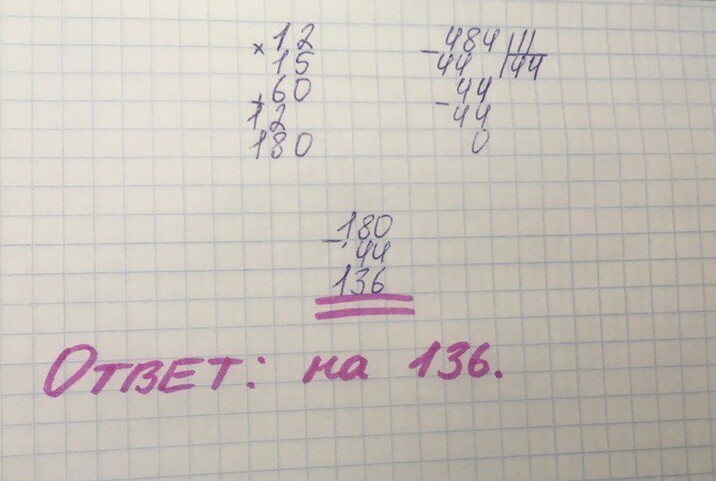 × 12
15
+ 60
12
180
− 484 | 11
44 | 44
− 44
44
0
− 180
44
136
Ответ: на 136.